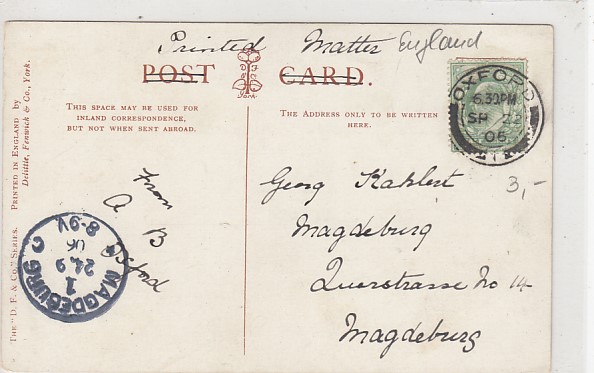 Printed Matter England
POST CARD.
D
F
& Co
York.
THIS SPACE MAY BE USED FOR
INLAND CORRESPONDENCE,
BUT NOT WHEN SENT ABROAD.
THE ADDRESS ONLY TO BE WRITTEN
HERE.
OXFORD
6.30PM
SP 22
06
3,-
From
A B
Oxford
Georg Kahlert
Magdeburg
Querstrasse No 14
Magdeburg
MAGDEBURG C
1
24.9
06
8-9V
THE "D. F. & Co." SERIES. PRINTED IN ENGLAND by
Delittle, Fenwick & Co., York.